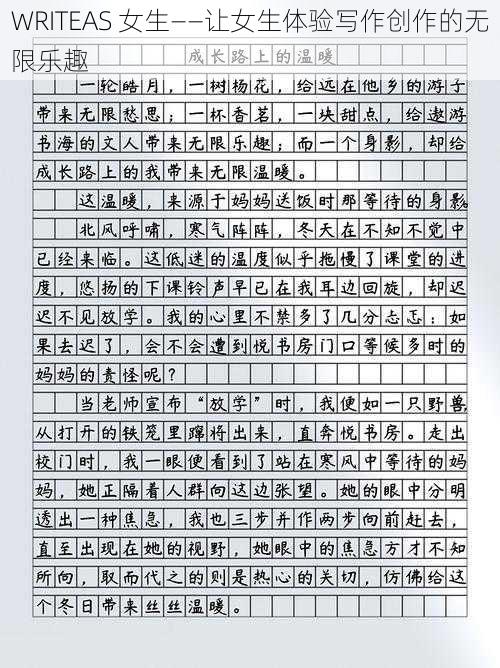 WRITEAS 女生——让女生体验写作创作的无
限乐趣
成长路上的温暖
一轮皓月，一树杨花，给远在他乡的游子
带来无限愁思；一杯香茗，一块甜点，给遨游
书海的文人带来无限乐趣；而一个身影，却给
成长路上的我带来无限温暖。
这温暖，来源于妈妈送饭时那等待的身影。
北风呼啸，寒气阵阵，冬天在不知不觉中
已经来临。这低迷的温度似乎拖慢了课堂的进
度，悠扬的下课铃声早已在我耳边回旋，却迟
迟不见放学。我的心里不禁多了几分忐忑：如
果去迟了，会不会遭到悦书房门口等候多时的
妈妈的责怪呢？
当老师宣布“放学”时，我便如一只野兽
从打开的铁笼里蹿将出来，直奔悦书房。走出
校门时，我一眼便看到了站在寒风中等待的妈
妈，她正隔着人群向这边张望。她的眼中分明
透出一种焦急，我也三步并作两步向前赶去，
直至出现在她的视野，她眼中的焦急方才不知
所向，取而代之的则是热心的关切，仿佛给这
个冬日带来丝丝温暖。